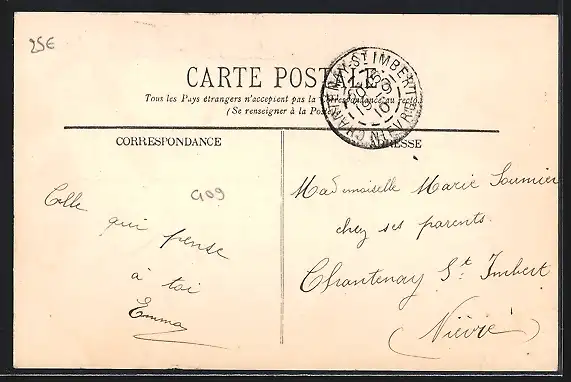 25€
CARTE POSTALE
Tous les Pays étrangers n'acceptent pas la Correspondance au recto.
(Se renseigner à la Poste
CHANTENAY-ST IMBERT
NIEVRE
CORRESPONDANCE
ADRESSE
G09
Celle
qui
pense
à toi
Emma
Mademoiselle Marie Saumier
chez ses parents.
Chantenay St Imbert
(Nièvre)